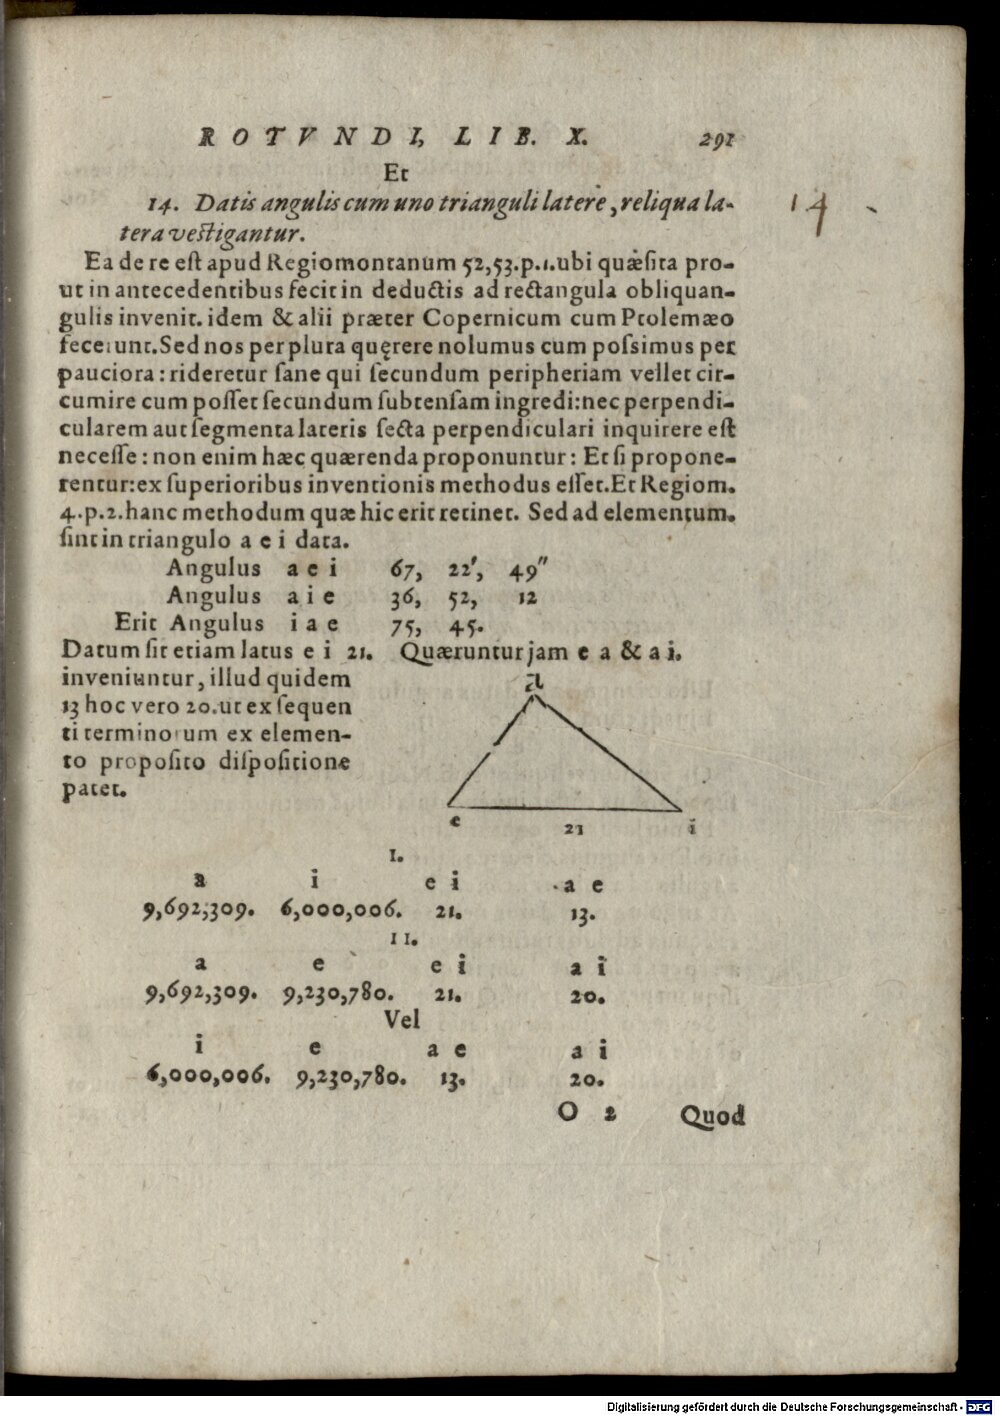 ROTVNDI, LIB. X. 291
Et
14. Datis angulis cum uno trianguli latere, reliqua la-
tera vestigantur.
14
Ea de re est apud Regiomontanum 52,53.p.1.ubi quæsita pro-
ut in antecedentibus fecit in deductis ad rectangula obliquan-
gulis invenit. idem & alii præter Copernicum cum Ptolemæo
fecerunt. Sed nos per plura quęrere nolumus cum possimus per
pauciora: rideretur sane qui secundum peripheriam vellet cir-
cumire cum posset secundum subtensam ingredi: nec perpendi-
cularem aut segmenta lateris secta perpendiculari inquirere est
necesse: non enim hæc quærenda proponuntur: Et si propone-
rentur: ex superioribus inventionis methodus esset. Et Regiom.
4.p.2. hanc methodum quæ hic erit retinet. Sed ad elementum.
sint in triangulo a e i data.
Angulus a e i 67, 22′, 49″
Angulus a i e 36, 52, 12
Erit Angulus i a e 75, 45.
Datum sit etiam latus e i 21. Quæruntur jam e a & a i.
inveniuntur, illud quidem
13 hoc vero 20. ut ex sequen
ti terminorum ex elemen-
to proposito dispositione
patet.
a
e 21 i
I.
a i e i a e
9,692,309. 6,000,006. 21. 13.
II.
a e e i a i
9,692,309. 9,230,780. 21. 20.
Vel
i e a e a i
6,000,006. 9,230,780. 13. 20.
O 2 Quod
Digitalisierung gefördert durch die Deutsche Forschungsgemeinschaft - DFG